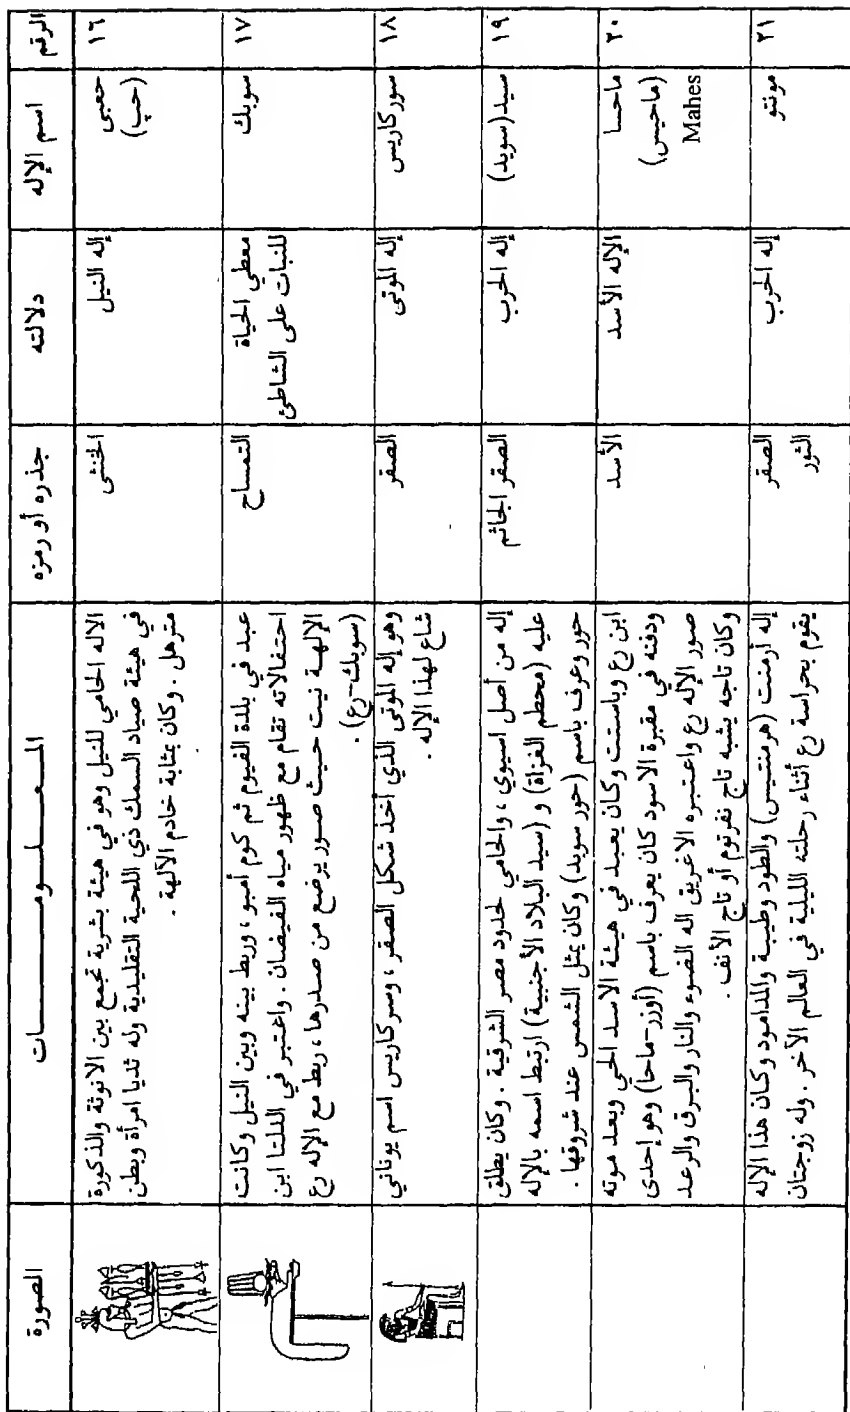 الرقم | اسم الإله | دلالته | جذره أو رمزه | المعلومات | الصورة
١٦ | حعبي | إله النيل | الخنثى | الاله الحامي للنيل وهو في هيئة بشرية تجمع بين الانوثة والذكورة
(حب) | في هيئة صياد السمك ذي اللحية التقليدية وله ثديا امرأة وبطن
مترهل . وكان بمثابة خادم الآلهة .
١٧ | سوبك | معطي الحياة | التمساح | عبد في بلدة الفيوم ثم كوم أمبو ، وربط بينه وبين النيل وكانت
للنبات على الشاطئ | احتفالاته تقام مع ظهور مياه الفيضان . واعتبر في الدلتا ابن
الإلهة نيت حيث صور يرضع من صدرها ، ربط مع الإله رع
(سوبك-رع) .
١٨ | سوركاريس | إله الموتى | الصقر | وهو إله الموتى الذي أخذ شكل الصقر ، وسركاريس اسم يوناني
شاع لهذا الإله .
١٩ | سبد (سوبد) | إله الحرب | الصقر الجاثم | إله من أصل اسيوي ، والحامي لحدود مصر الشرقية . وكان يطلق
عليه (محطم الغزاة) و (سيد البلاد الأجنبية) ارتبط اسمه بالإله
حور وعرف باسم (حور سوبد) وكان يمثل الشمس عند شروقها .
٢٠ | ماحسا | الإله الأسد | الأسد | ابن رع وباستت وكان يعبد في هيئة الاسد الحي وبعد موته
(ماحيس) | ودفنه في مقبرة الاسود كان يعرف باسم (أوزر-ماحا) وهو إحدى
Mahes | صور الإله رع واعتبره الاغريق اله الضوء والنار والبرق والرعد
وكان تاجه يشبه تاج نفرتوم أو تاج الأنف .
٢١ | مونتو | إله الحرب | الصقر | إله أرمنت (هرمنتيس) والطود وطيبة والمدامود وكان هذا الإله
الثور | يقوم بحراسة رع أثناء رحلته الليلية في العالم الآخر . وله زوجتان